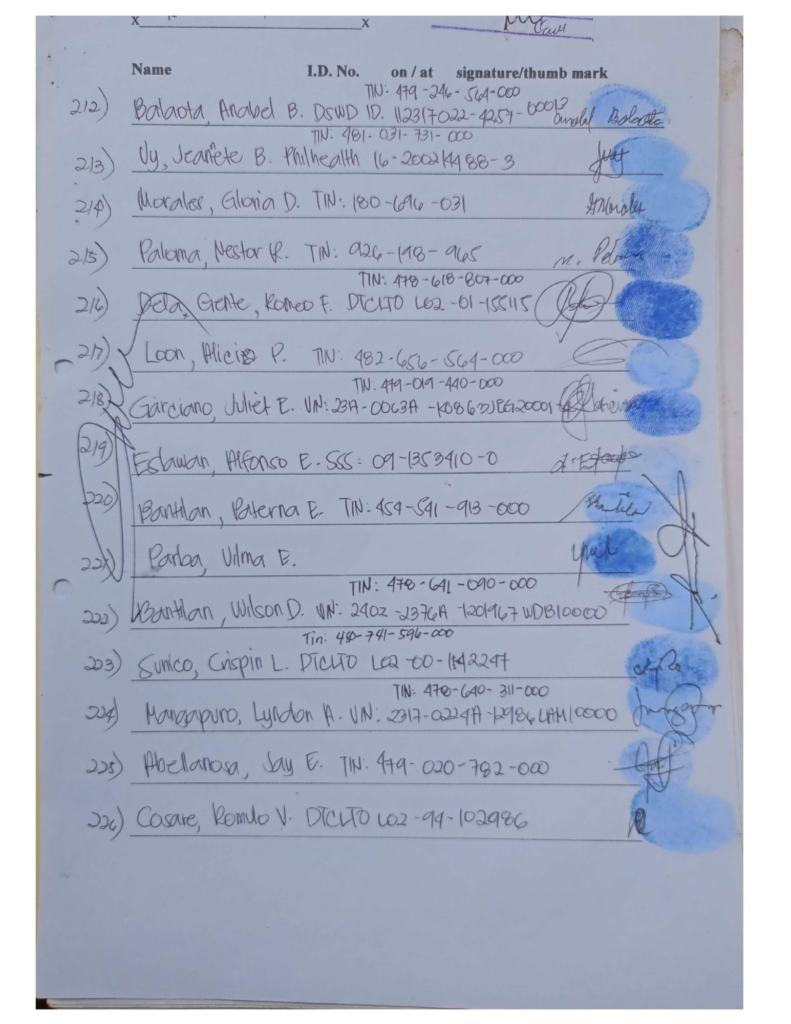 x x
Name I.D. No. on / at signature/thumb mark
TIN: 479-246-564-000
212) Balaota, Anabel B. DSWD ID. 112317022-4257-00013
TIN: 481-031-731-000
213) Uy, Jeanete B. Philhealth 16-200214488-3
214) Morales, Gloria D. TIN: 180-696-031
215) Paloma, Nestor R. TIN: 926-198-965
TIN: 478-618-807-000
216) Dela Gente, Romeo F. DTCLTO L02-01-155115
217) Loon, Alicia P. TIN: 482-656-564-000
TIN: 479-019-440-000
218) Garciano, Juliet E. VN: 23A-0063A
219) Eslawan, Alfonso E. SSS: 09-1353410-0
220) Bantilan, Paterna E. TIN: 454-541-913-000
221) Parba, Vilma E.
TIN: 478-641-090-000
222) Bantilan, Wilson D. VN: 2402-2376A-1201967WDB10000
Tin: 480-741-596-000
223) Sunico, Crispin L. DTCLTO L02-00-142247
TIN: 478-640-311-000
224) Mangapuro, Lyndon A. VN: 2317-0224A-12986LAM10000
225) Abellanosa, Jay E. TIN: 479-020-782-000
226) Cosare, Romulo V. DTCLTO L02-94-102986